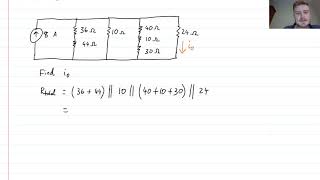 8 A
36 Ω
44 Ω
10 Ω
40 Ω
10 Ω
30 Ω
24 Ω
i₀
Find i₀
R_total = (36 + 44) || 10 || (40 + 10 + 30) || 24
=